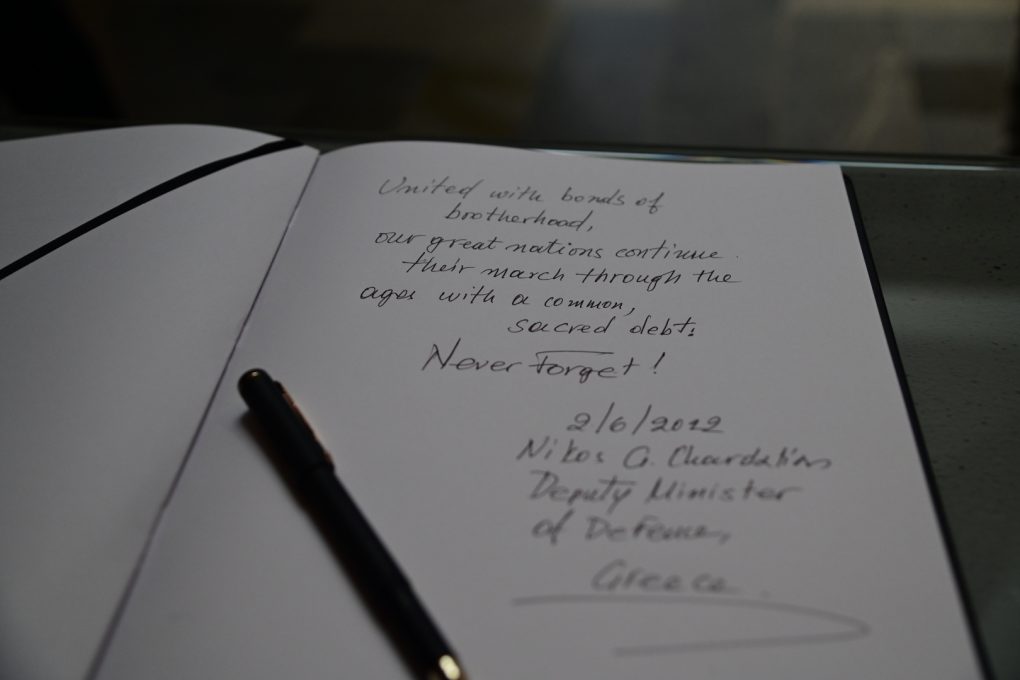 United with bonds of
brotherhood,
our great nations continue
their march through the
ages with a common,
sacred debt.
Never Forget!
2/6/2012
Nikos G. Chardalias
Deputy Minister
of Defense,
Greece